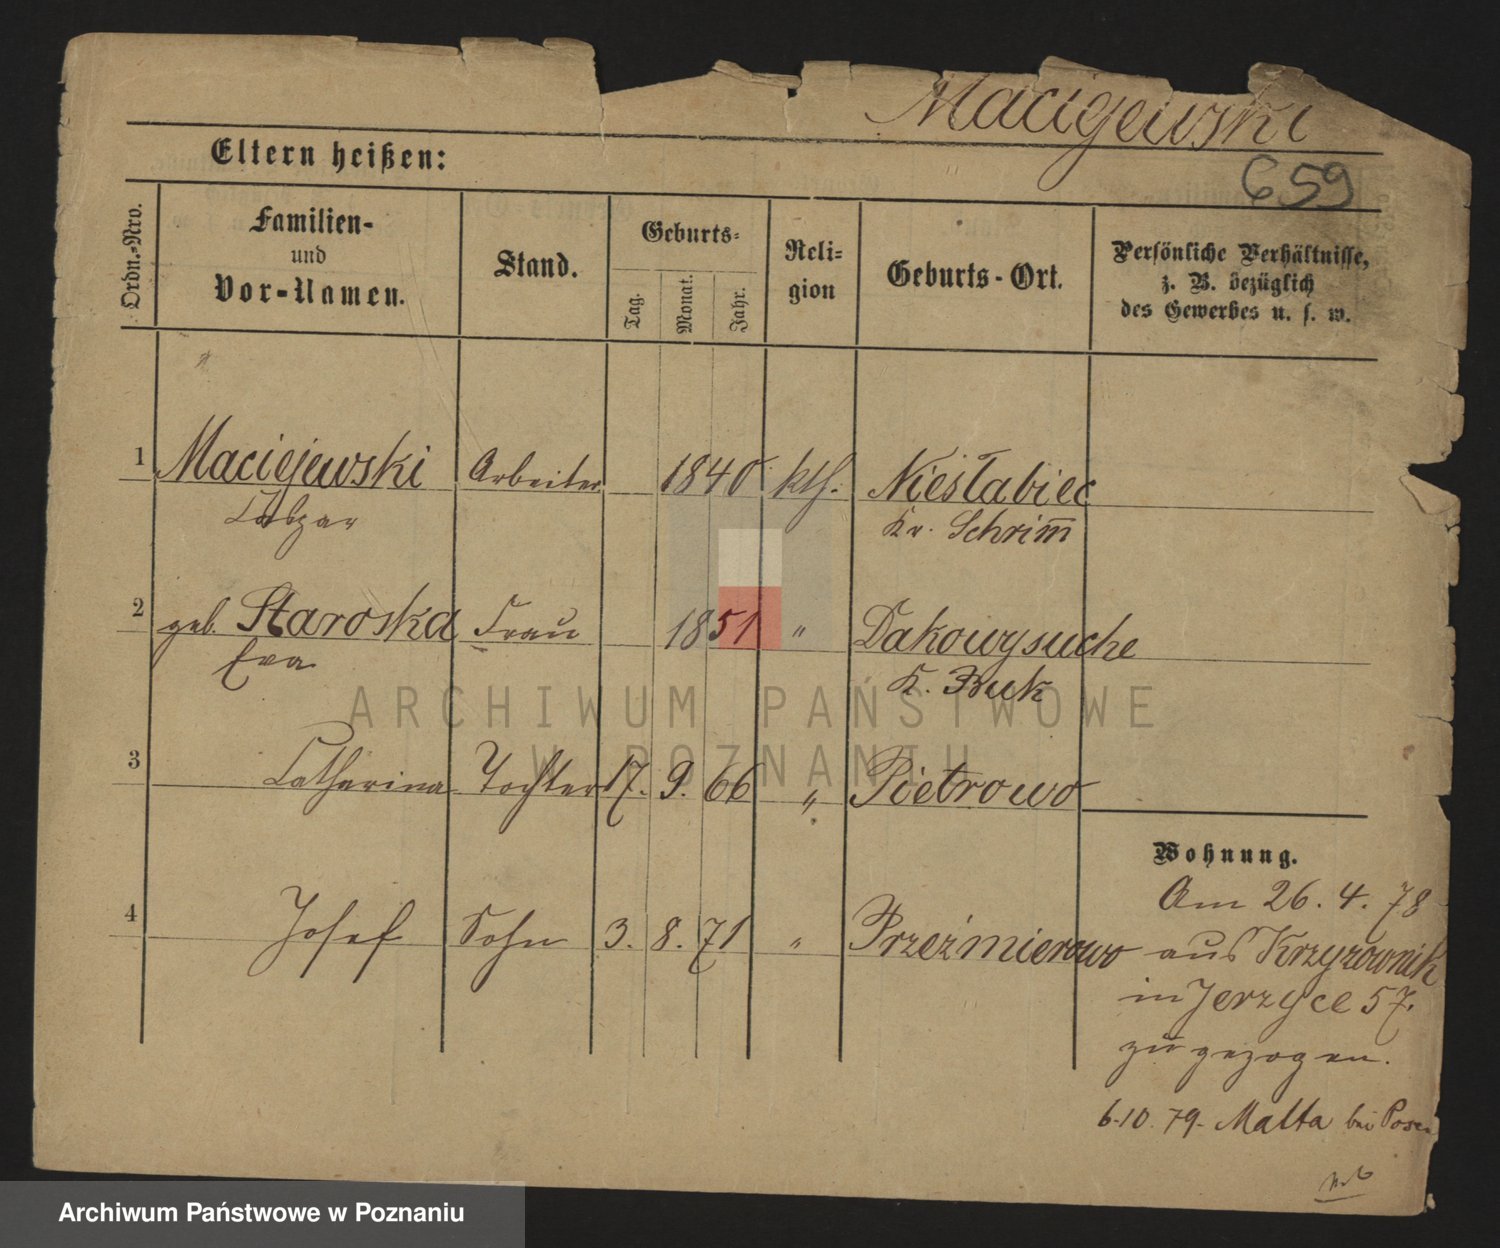 Macigewski
659
Eltern heißen:
Ordn.-Nro.
Familien-
und
Vor-Namen.
Stand.
Geburts-
Tag.
Monat.
Jahr.
Reli-
gion
Geburts-Ort.
Persönliche Verhältnisse,
z. B. bezüglich
des Gewerbes u. s. w.
1 Maciejewski Arbeiter 1840 kth. Niesłabiec
Kr. Schrim̄
2 geb. Staroska Frau 1851 " Dakowysuche
Eva K. Buk
3 Catharina Tochter 17. 9. 66 " Pietrowo
4 Josef Sohn 3. 8. 71 " Przeźmierowo
Wohnung.
Am 26. 4. 78
aus Krzyzownik
in Jerzyce 57.
zugezogen.
6.10.79. Malta bei Posen
ARCHIWUM PAŃSTWOWE
W POZNANIU
Archiwum Państwowe w Poznaniu